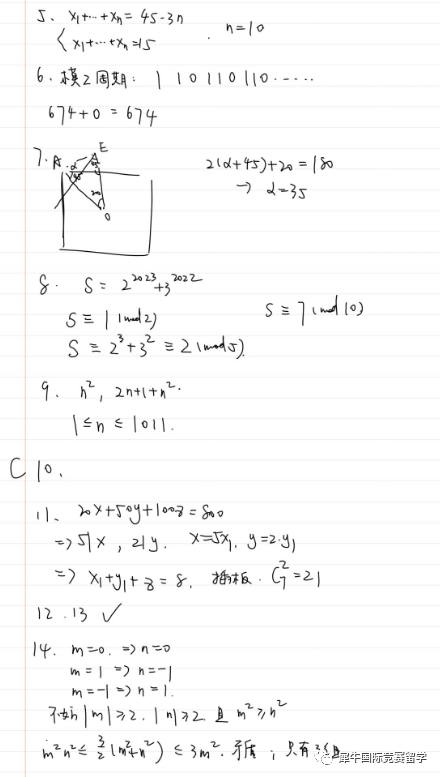 5. x₁+⋯+xₙ = 45-3n
{ x₁+⋯+xₙ=15 . n=10
6. 模2周期: 1 1 0 1 1 0 1 1 0 ⋯⋯
674+0 = 674
7. A α E
45
20
O
2(α+45)+20=180
→ α=35
8. S= 2^2023+3^2022
S≡1 (mod 2) S≡7 (mod 10)
S≡2³+3²≡2 (mod 5).
9. n², 2n+1+n².
1≤n≤1011.
C 10.
11. 20x+50y+100z=800
⇒ 5|x, 2|y. x=5x₁, y=2·y₁
⇒ x₁+y₁+z=8. 插板. C₇²=21
12. 13 ✓
14. m=0. ⇒ n=0
m=1 ⇒ n=-1
m=-1 ⇒ n=1.
不妨 |m|≥2. |n|≥2 且 m²≥n²
m²n²≤ 3/2(m²+n²) ≤ 3m². 矛盾; 只有3组
犀牛国际竞赛留学